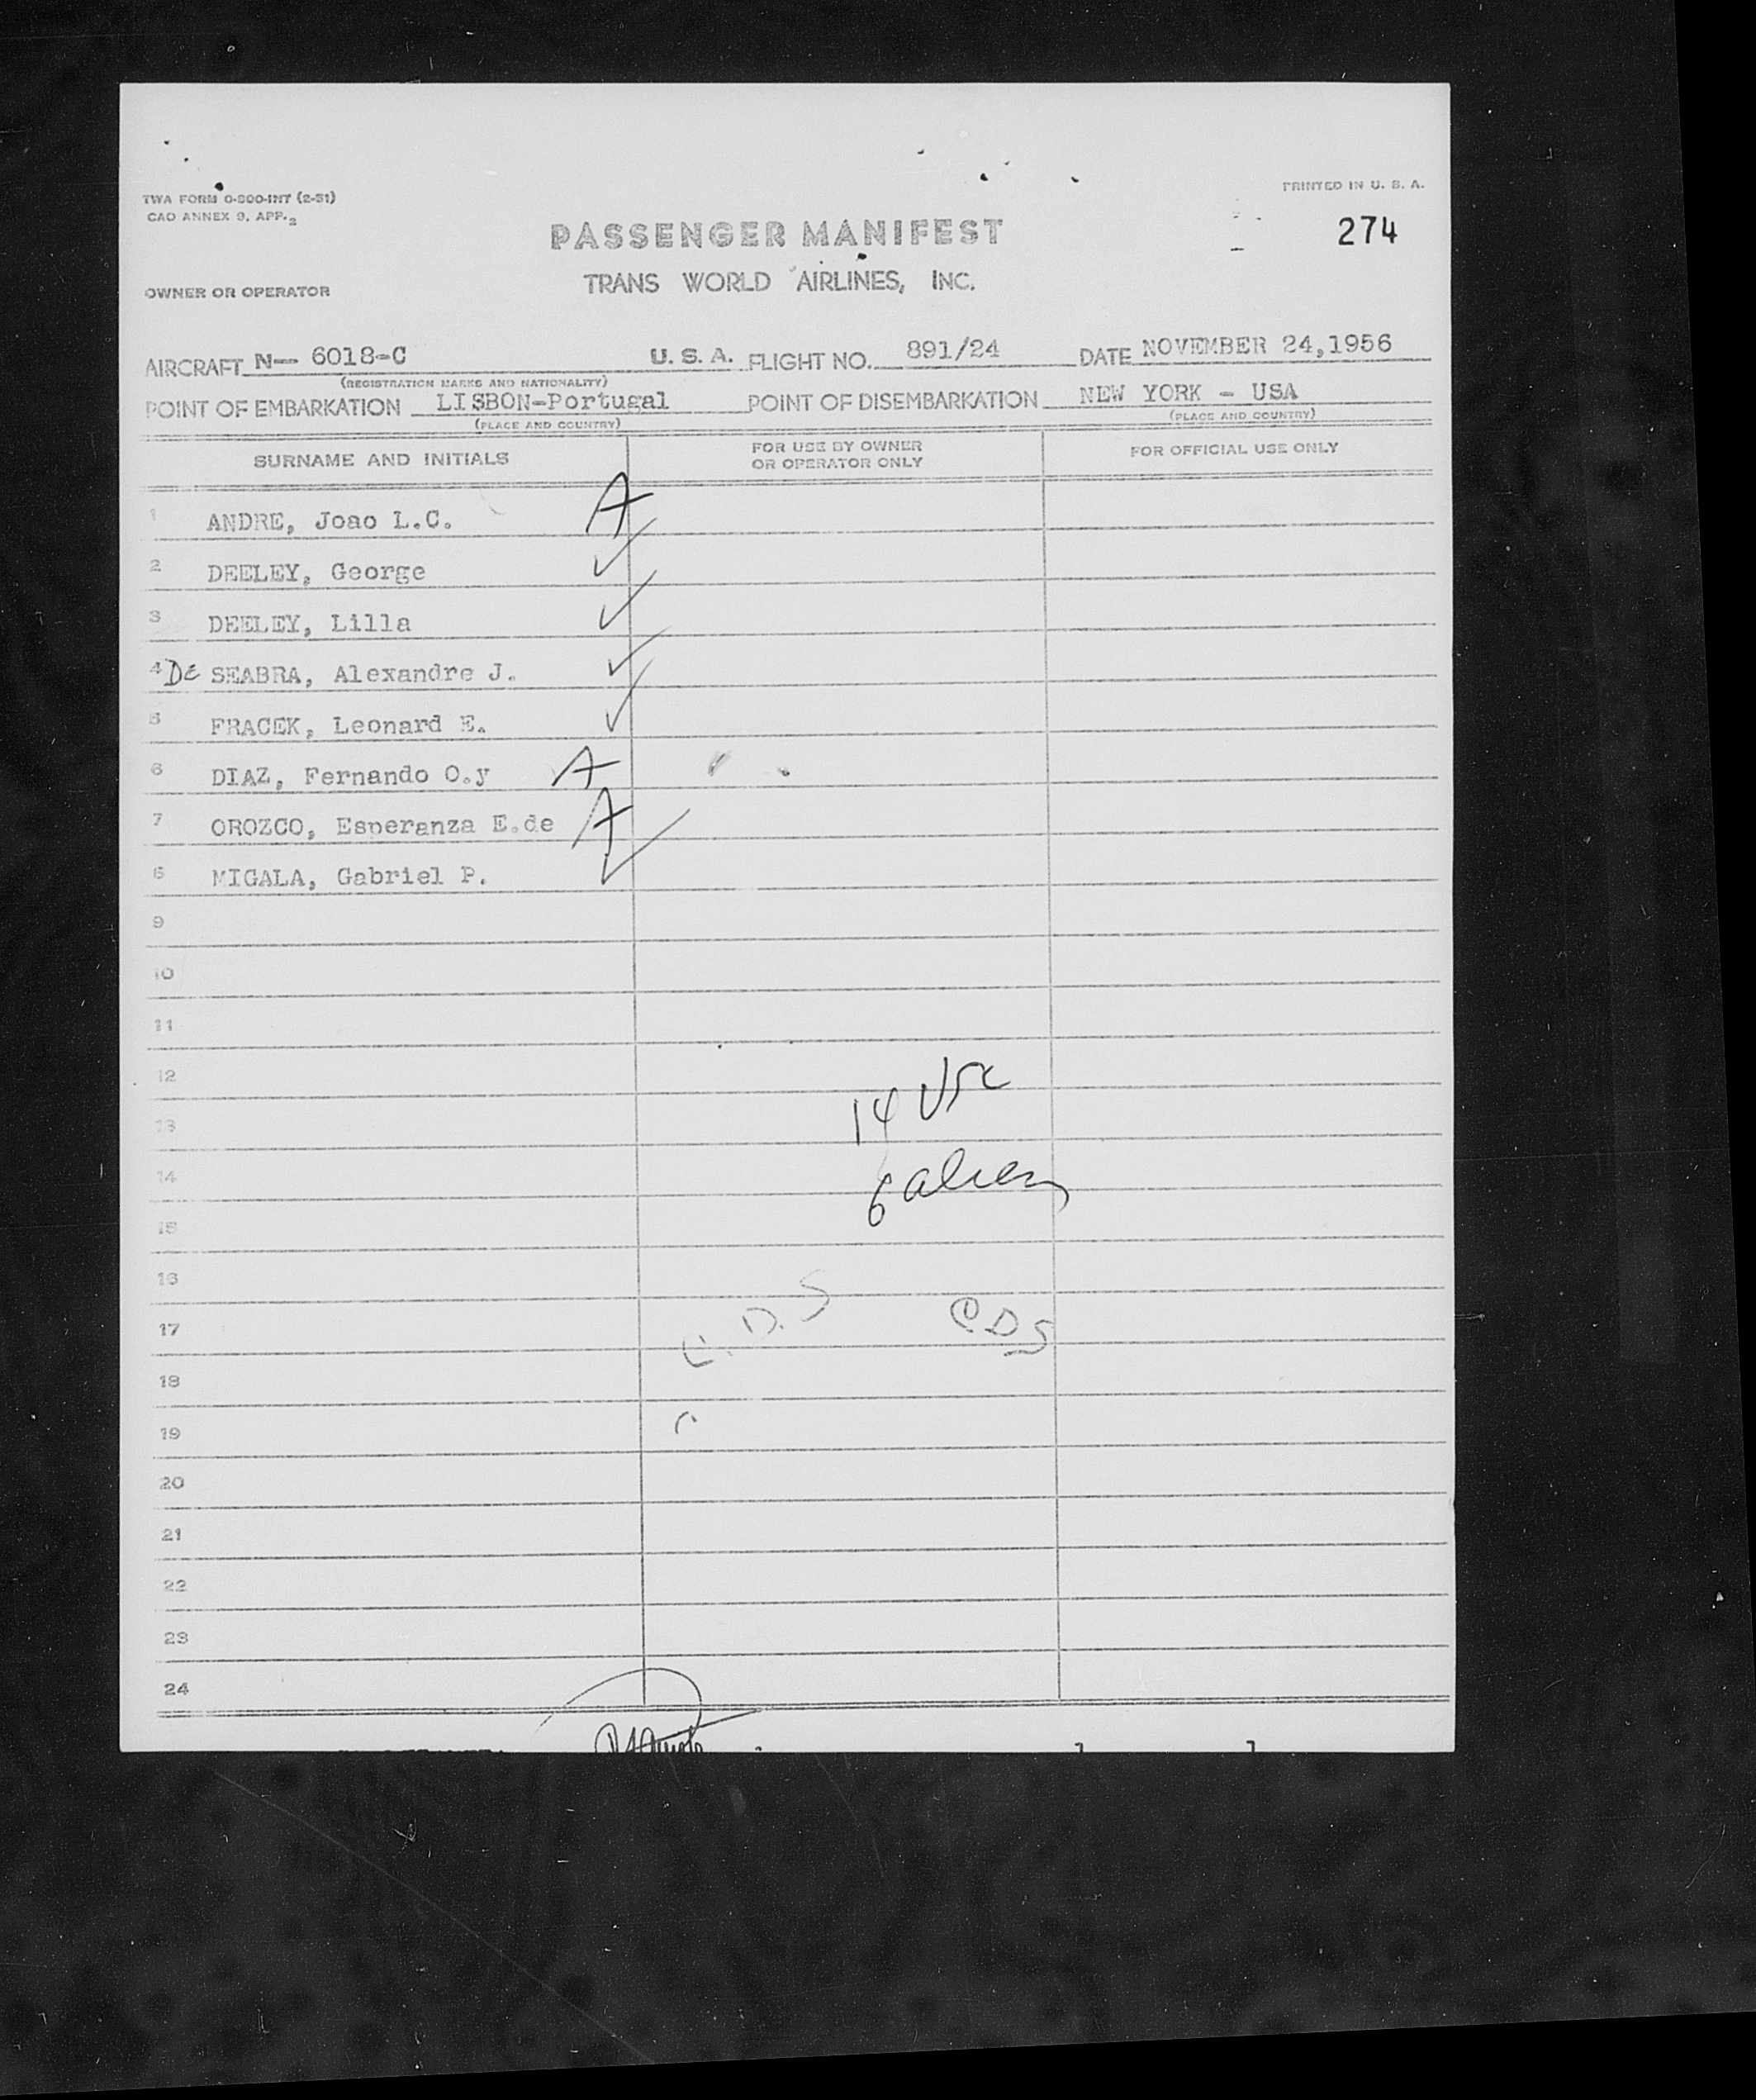 TWA FORM 0-800-INT (2-51)
CAO ANNEX 9, APP. 2
PRINTED IN U. S. A.
PASSENGER MANIFEST
274
OWNER OR OPERATOR
TRANS WORLD AIRLINES, INC.
AIRCRAFT N— 6018-C U. S. A. FLIGHT NO. 891/24 DATE NOVEMBER 24,1956
(REGISTRATION MARKS AND NATIONALITY)
POINT OF EMBARKATION LISBON-Portugal POINT OF DISEMBARKATION NEW YORK - USA
(PLACE AND COUNTRY) (PLACE AND COUNTRY)
SURNAME AND INITIALS FOR USE BY OWNER OR OPERATOR ONLY FOR OFFICIAL USE ONLY
1 ANDRE, Joao L.C. A
2 DEELEY, George ✓
3 DEELEY, Lilla ✓
4 De SEABRA, Alexandre J. ✓
5 FRACEK, Leonard E. ✓
6 DIAZ, Fernando O.y A
7 OROZCO, Esperanza E.de A
8 MIGALA, Gabriel P. ✓
9
10
11
12
14 USC
13
14
6 alien
15
16
17 C.D.S CDS
18
19
20
21
22
23
24